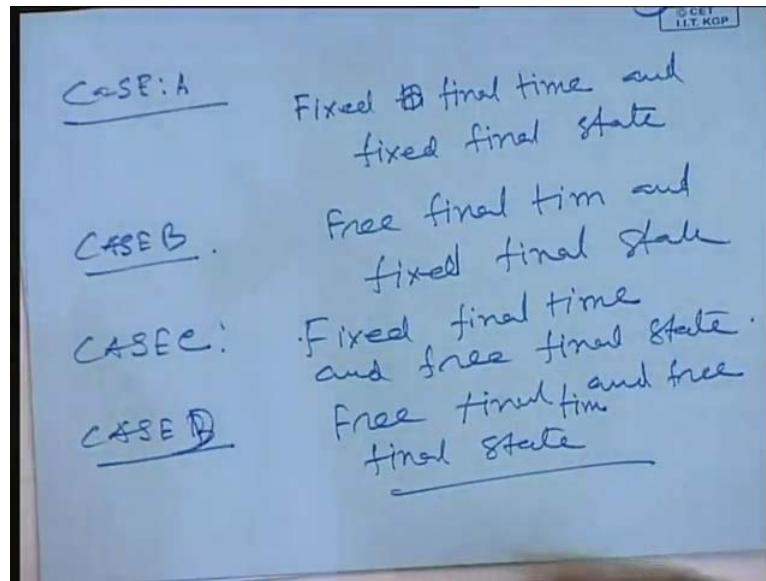 © CET
I.I.T. KGP
CASE: A
Fixed final time and
fixed final state
CASE B.
Free final tim and
fixed final state
CASE C:
Fixed final time
and free final state.
CASE D
Free final tim and free
final state